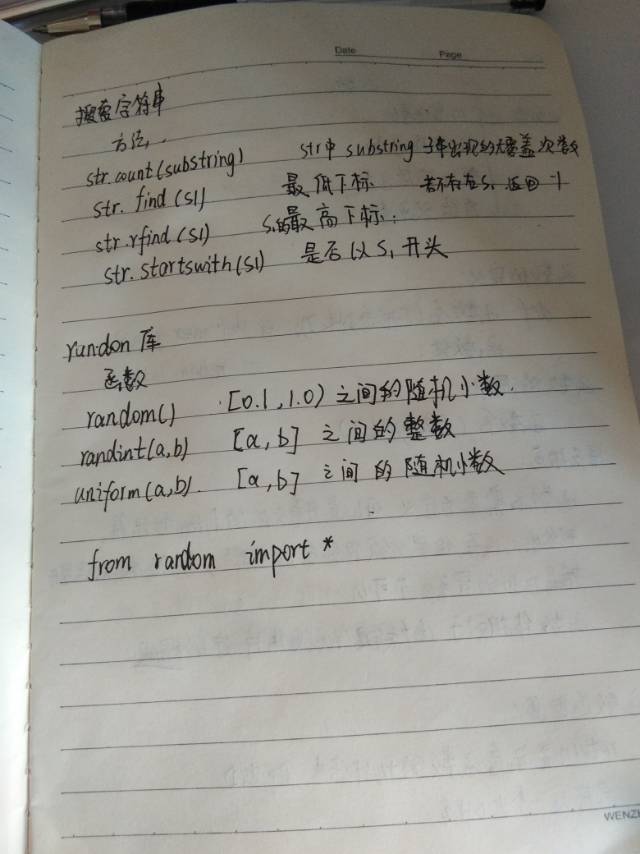 Date Page
搜索字符串
方法
str.count(substring) str中 substring 子串出现的无覆盖次数
str.find(s1) 最低下标 若不存在s1返回-1
str.rfind(s1) s1的最高下标;
str.startswith(s1) 是否以s1开头
rundon库
函数
random() [0.1,1.0)之间的随机小数.
randint(a,b) [a,b]之间的整数
uniform(a,b). [a,b]之间的随机小数
from random import *